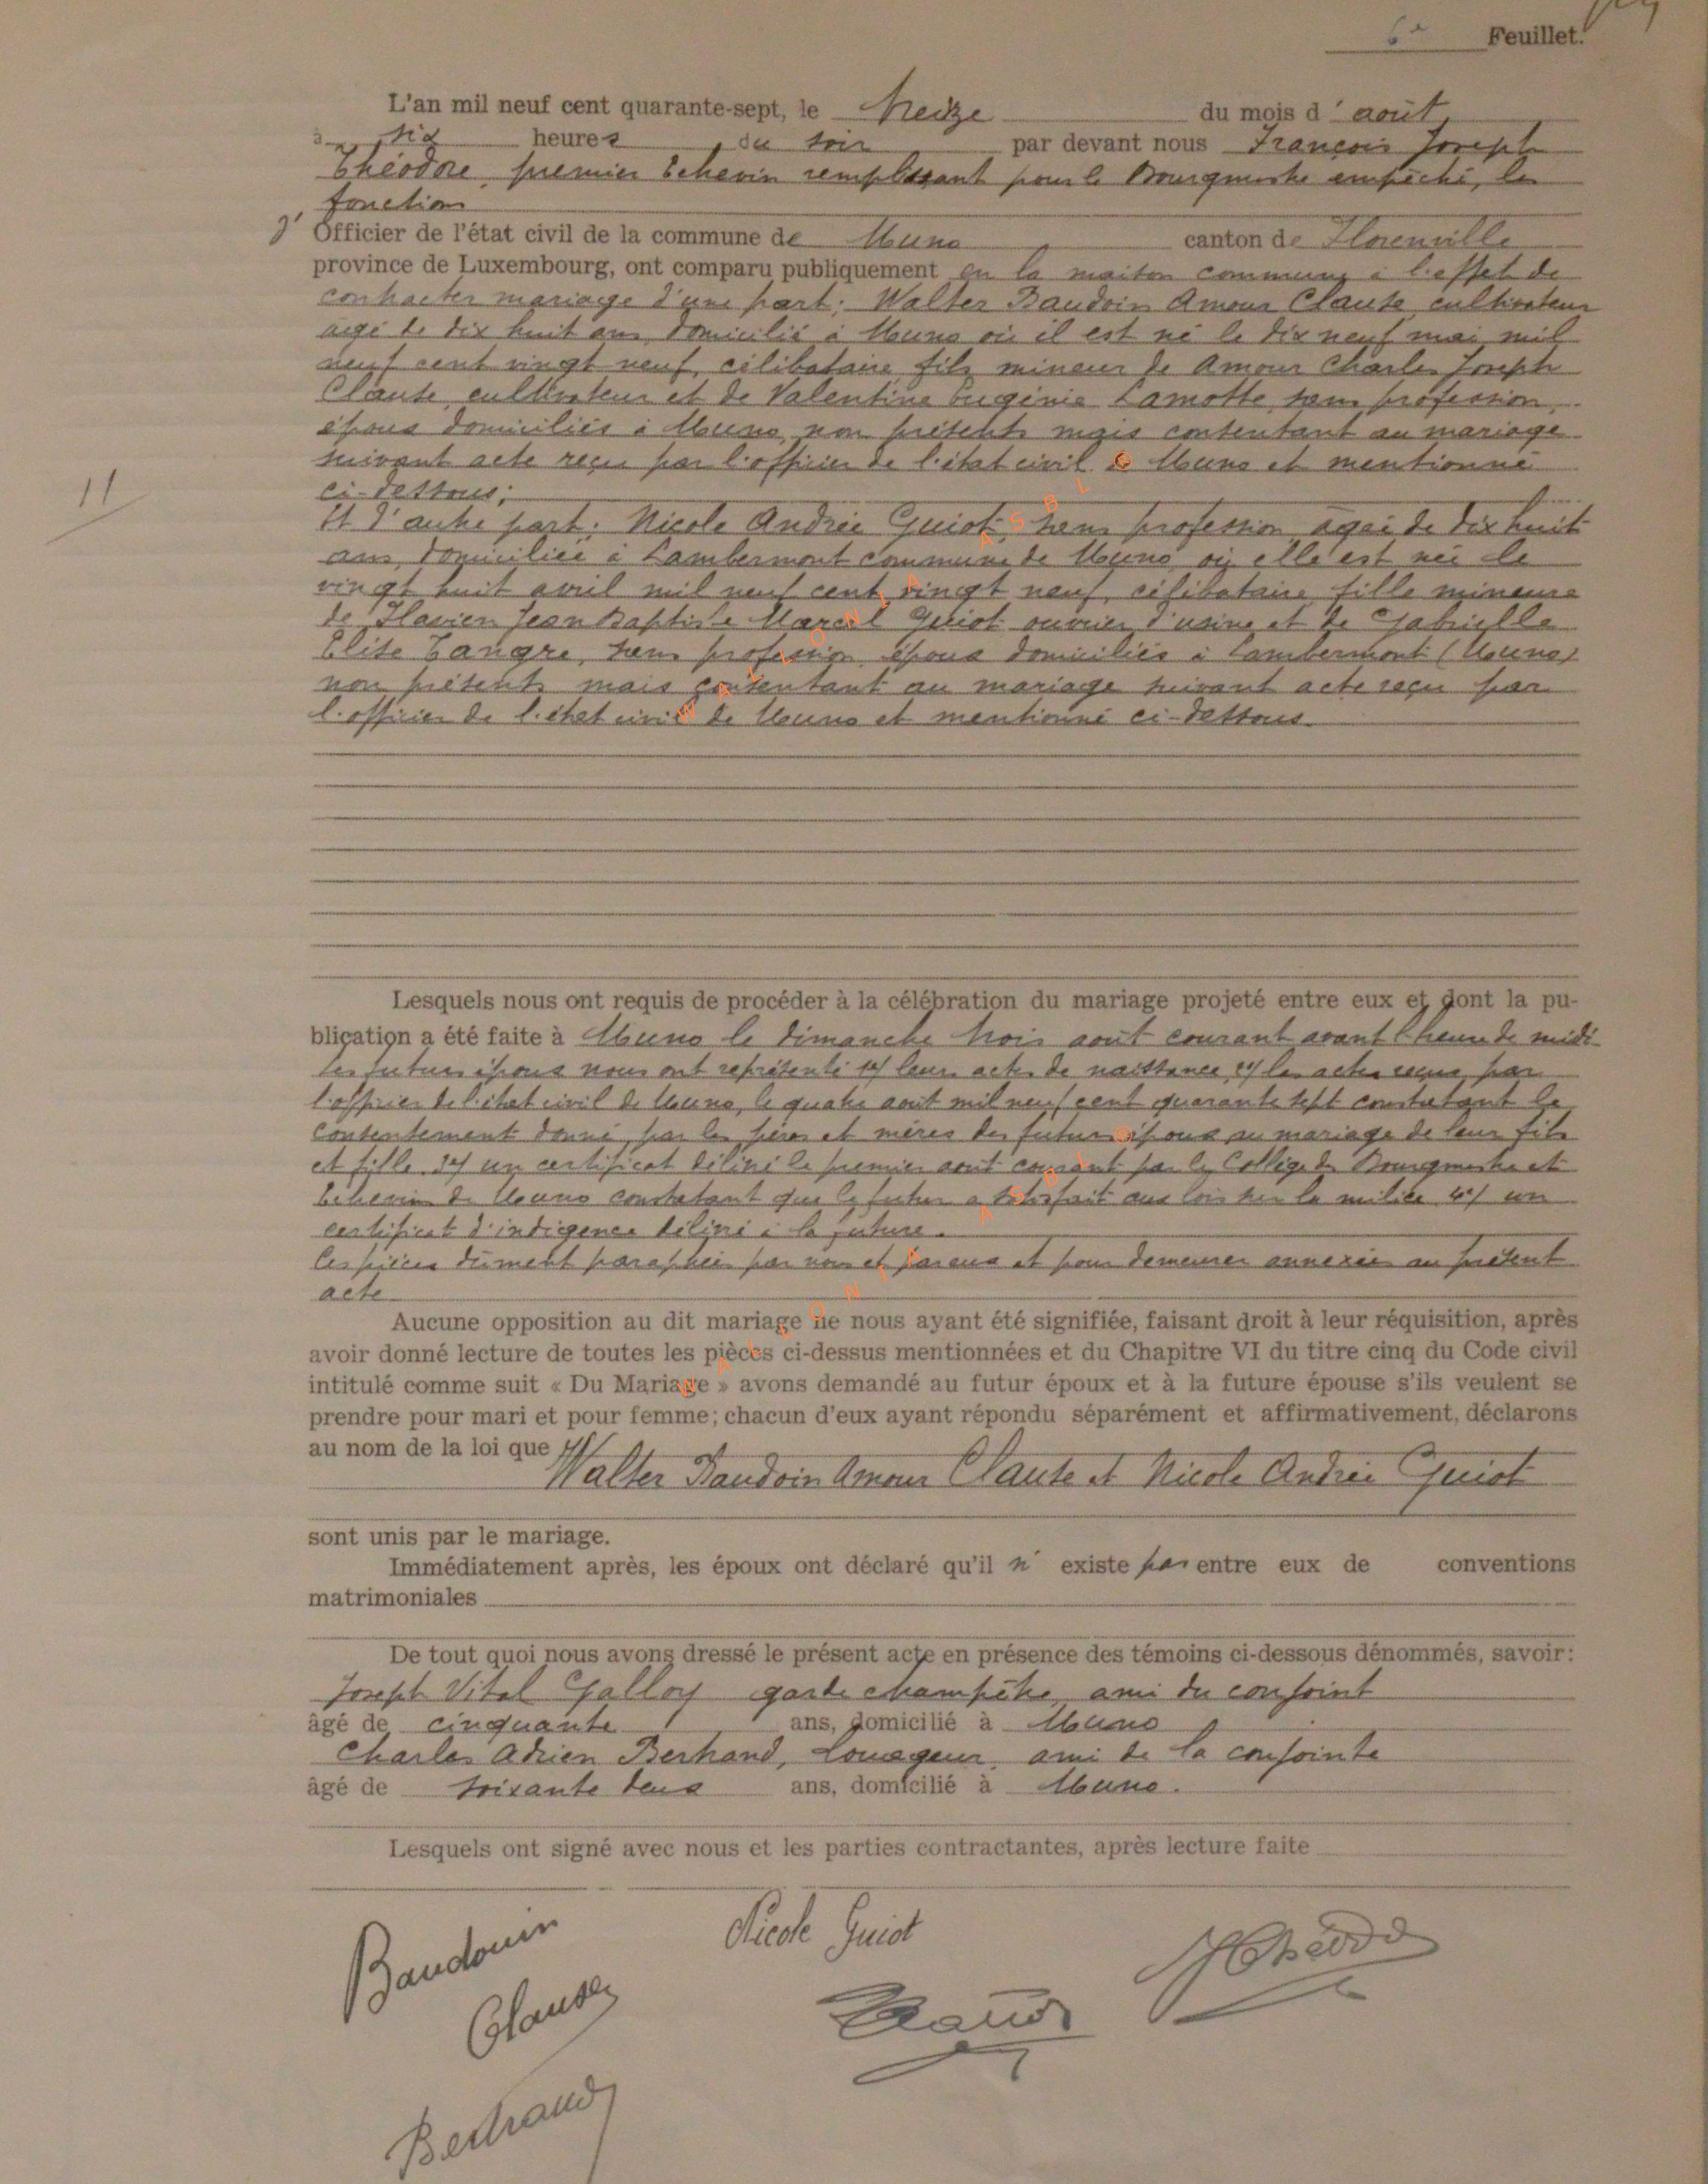 6e Feuillet.
L'an mil neuf cent quarante-sept, le treize du mois d'août,
à six heures du soir par devant nous François Joseph
Théodore, premier Echevin remplissant pour le Bourgmestre empêché, les
fonction
d'Officier de l'état civil de la commune de Muno canton de Florenville
province de Luxembourg, ont comparu publiquement en la maison commune à l'effet de
contracter mariage d'une part: Walter Baudoin Amour Clause, cultivateur
âgé de dix huit ans domicilié à Muno où il est né le dix neuf mai mil
neuf cent vingt neuf, célibataire fils mineur de Amour Charles Joseph
Clause, cultivateur et de Valentine Eugénie Lamotte, sans profession,
époux domiciliés à Muno, non présents mais consentant au mariage
suivant acte reçu par l'officier de l'état civil de Muno et mentionné
ci-dessous;
11
Et d'autre part: Nicole Andrée Guiot, sans profession âgée de dix huit
ans, domiciliée à Lambermont commune de Muno où elle est née le
vingt huit avril mil neuf cent vingt neuf, célibataire, fille mineure
de Flavien Jean Baptiste Marcel Guiot ouvrier d'usine et de Gabrielle
Elise Tangre, sans profession, époux domiciliés à Lambermont (Muno)
non présents mais consentant au mariage suivant acte reçu par
l'officier de l'état civil de Muno et mentionné ci-dessous.
Lesquels nous ont requis de procéder à la célébration du mariage projeté entre eux et dont la pu-
blication a été faite à Muno le dimanche trois août courant avant l'heure de midi
les futurs époux nous ont représenté 1°/ leurs actes de naissance, 2°/ les actes reçus par
l'officier de l'état civil de Muno, le quatre août mil neuf cent quarante sept constatant le
consentement donné par les pères et mères des futurs époux au mariage de leur fils
et fille 3°/ un certificat délivré le premier août courant par le Collège des Bourgmestre et
Echevins de Muno constatant que le futur a satisfait aux lois sur la milice 4°/ un
certificat d'indigence délivré à la future.
Ces pièces dûment paraphées par nous et par eux et pour demeurer annexées au présent
acte
Aucune opposition au dit mariage ne nous ayant été signifiée, faisant droit à leur réquisition, après
avoir donné lecture de toutes les pièces ci-dessus mentionnées et du Chapitre VI du titre cinq du Code civil
intitulé comme suit « Du Mariage » avons demandé au futur époux et à la future épouse s'ils veulent se
prendre pour mari et pour femme; chacun d'eux ayant répondu séparément et affirmativement, déclarons
au nom de la loi que Walter Baudoin Amour Clause et Nicole Andrée Guiot
sont unis par le mariage.
Immédiatement après, les époux ont déclaré qu'il n' existe pas entre eux de conventions
matrimoniales
De tout quoi nous avons dressé le présent acte en présence des témoins ci-dessous dénommés, savoir:
Joseph Vital Galloy garde champêtre, ami du conjoint
âgé de cinquante ans, domicilié à Muno
Charles Adrien Bertrand, Louageur, ami de la conjointe
âgé de soixante deux ans, domicilié à Muno.
Lesquels ont signé avec nous et les parties contractantes, après lecture faite
Baudouin
Clause
Nicole Guiot
Bertrand